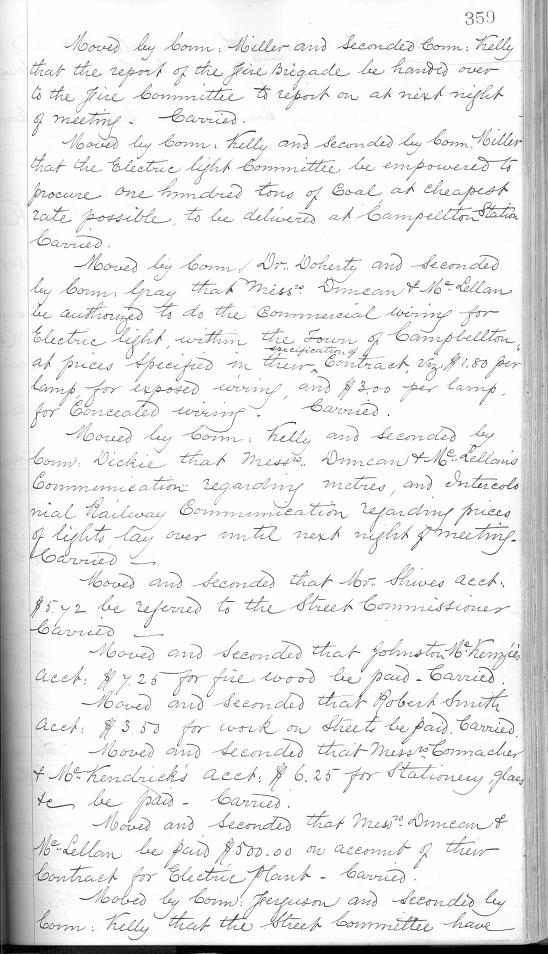 359
Moved by Coun: Miller and Seconded Coun: Kelly
that the report of the Fire Brigade be handed over
to the Fire Committee to report on at next night
of meeting. Carried.
Moved by Coun: Kelly and seconded by Coun. Miller
that the Electric light Committee be empowered to
procure one hundred tons of Coal at cheapest
rate possible, to be delivered at Campellton Station
Carried.
Moved by Coun: Dr. Doherty and seconded
by Coun: Gray that Messrs. Duncan & McLellan
be authorized to do the Commercial wiring for
Electric light, within the Town of Campbellton,
at prices specified in their specification of Contract viz, $1.80 per
lamp for exposed wiring, and $3.00 per lamp,
for Concealed wiring. Carried.
Moved by Coun: Kelly and seconded by
Coun: Dickie that Messrs. Duncan & McLellan's
Communication regarding metres, and Intercolo
nial Railway Communication regarding prices
of lights lay over until next night of meeting.
Carried —
Moved and seconded that Mr. Shives acct.
$572 be referred to the Street Commissioner
Carried —
Moved and seconded that Johnston McKenzie's
acct: $7.25 for fire wood be paid - Carried.
Moved and seconded that Robert Smith
acct: $3.50 for work on Streets be paid. Carried.
Moved and seconded that Messrs Connacher
& McKendrick's acct: $6.25 for Stationery glass
&c be paid - Carried.
Moved and seconded that Messrs. Duncan &
McLellan be paid $500.00 on account of their
Contract for Electric Plant - Carried.
Moved by Coun: Ferguson and seconded by
Coun: Kelly that the Street Committee have